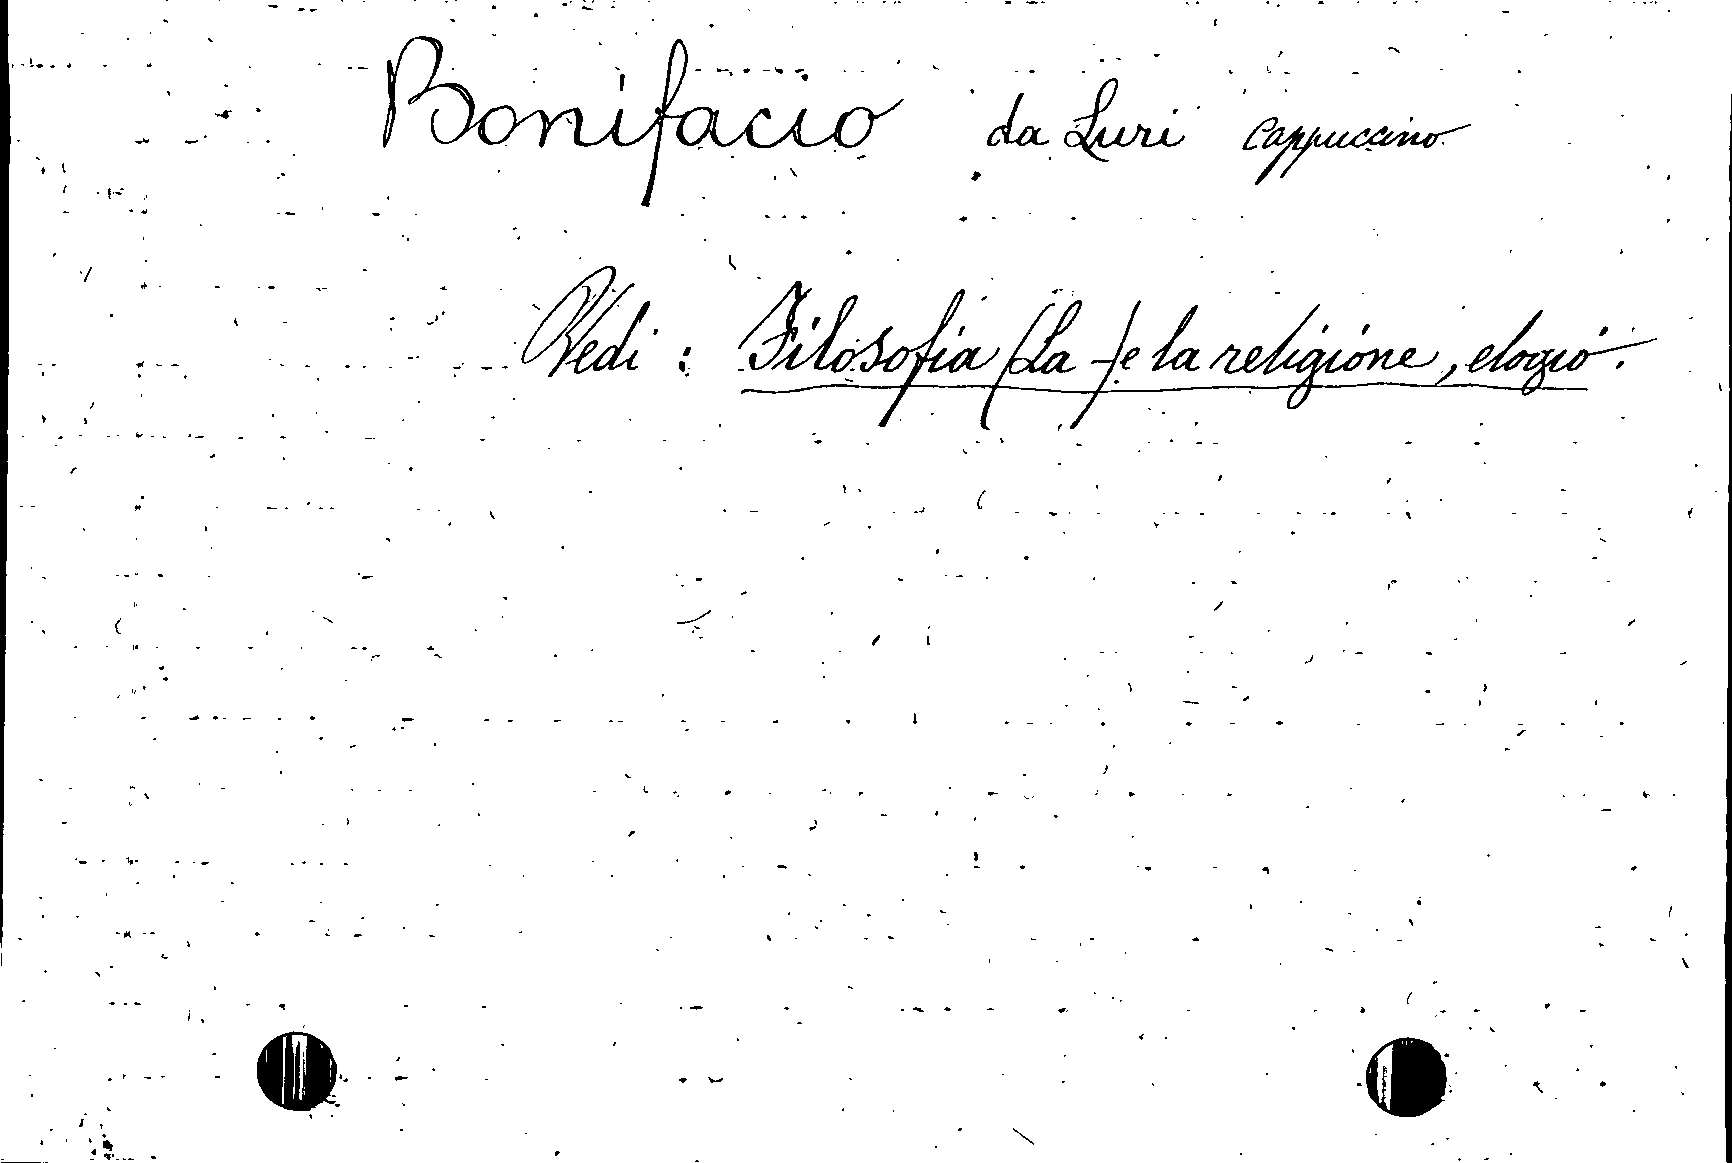 Bonifacio da Luri Cappuccino
Vedi : Filosofia (La -) e la religione, elogio.